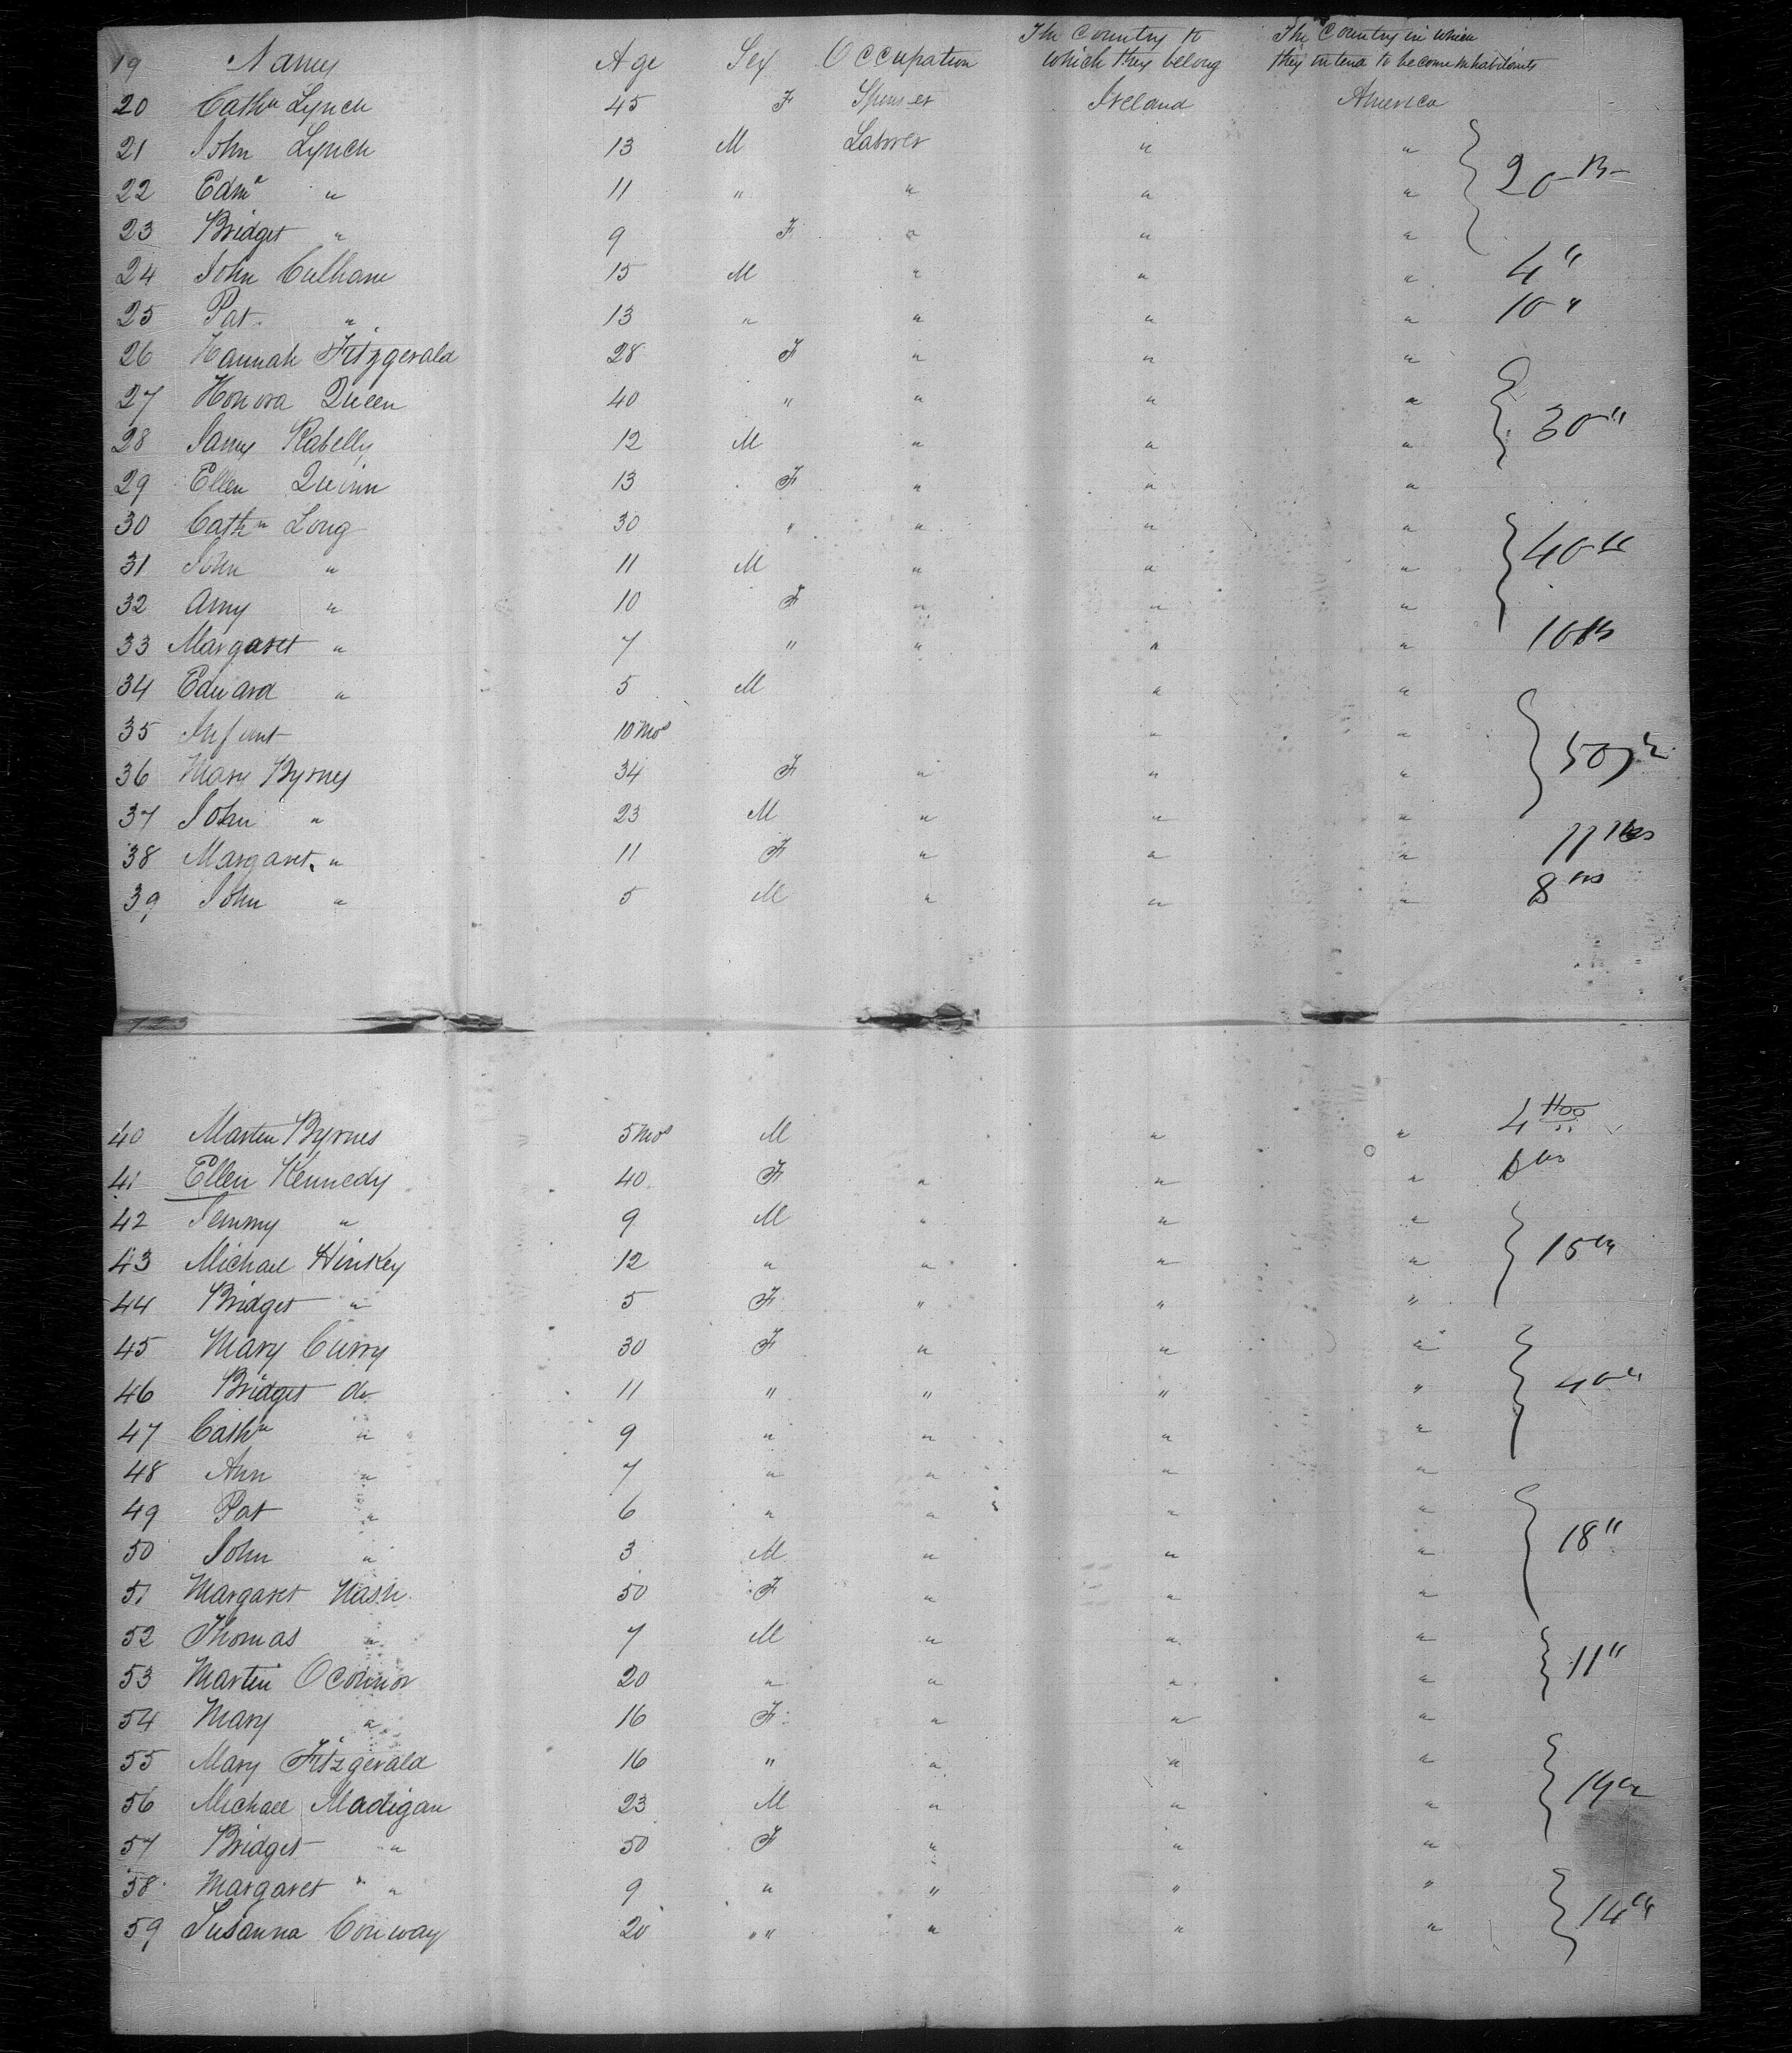 19 Names Age Sex Occupation The Country to which they belong The Country in which they intend to become inhabitants
20 Cathn Lynch 45 F Spinster Ireland America
21 John Lynch 13 M Laborer " "
22 Edmd " 11 " " " " 20
23 Bridget " 9 F " " "
24 John Culhane 15 M " " " 4 "
25 Pat " 13 " " " " 10 "
26 Hannah Fitzgerald 28 F " " "
27 Honora Queen 40 " " " " 30 "
28 James 12 M " " "
29 Ellen Quinn 13 F " " "
30 Cathn Long 30 " " " "
31 John " 11 M " " " 40 "
32 Amy " 10 F " " "
33 Margaret " 7 " " " "
34 Edward " 5 M " "
35 Infant 10 Mos " "
36 Mary Byrnes 34 F " " " 50
37 John " 23 M " " "
38 Margaret " 11 F " " " 11
39 John " 5 M " " " 8
40 Marten Byrnes 5 Mos M " " 4
41 Ellen Kennedy 40 F " " "
42 Jemmy " 9 M " " "
43 Michael Hinkey 12 " " " " 15 "
44 Bridget " 5 F " " "
45 Mary Curry 30 F " " "
46 Bridget do 11 " " " " 40 "
47 Cathn " 9 " " " "
48 Ann " 7 " " " "
49 Pat " 6 " " " "
50 John " 3 M " " " 18 "
51 Margaret Nash 50 F " " "
52 Thomas " 7 M " " "
53 Martin OConnor 20 " " " " 11 "
54 Mary " 16 F " " "
55 Mary Fitzgerald 16 " " " "
56 Michael Madigan 23 M " " " 14 "
57 Bridget " 50 F " " "
58 Margaret " " 9 " " " "
59 Susanna Conway 20 " " " " 14 "